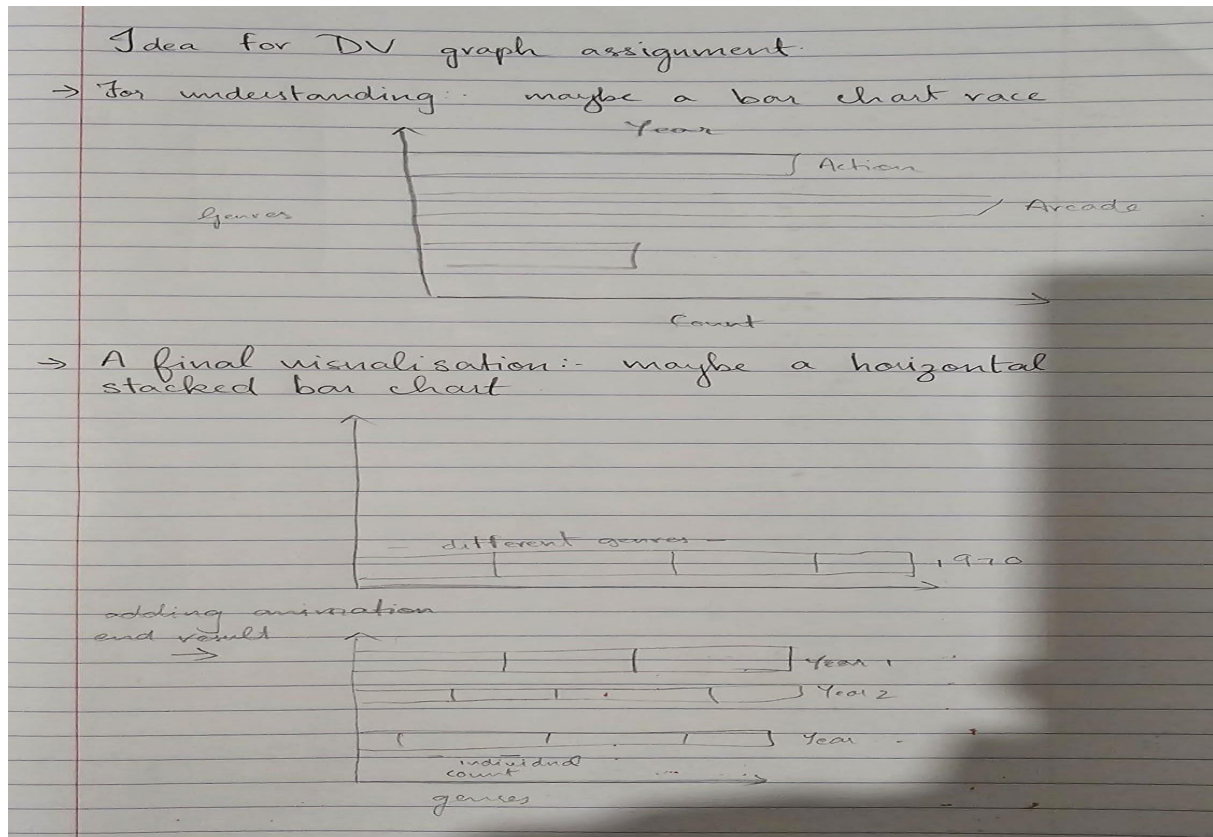 Idea for DV graph assignment.
→ For understanding:- maybe a bar chart race
Year
Action
Genres
Arcade
Count
→ A final visualisation:- maybe a horizontal
stacked bar chart
- different genres -
1970
adding animation
end result
→
Year 1
Year 2
Year -
individual
count
genres